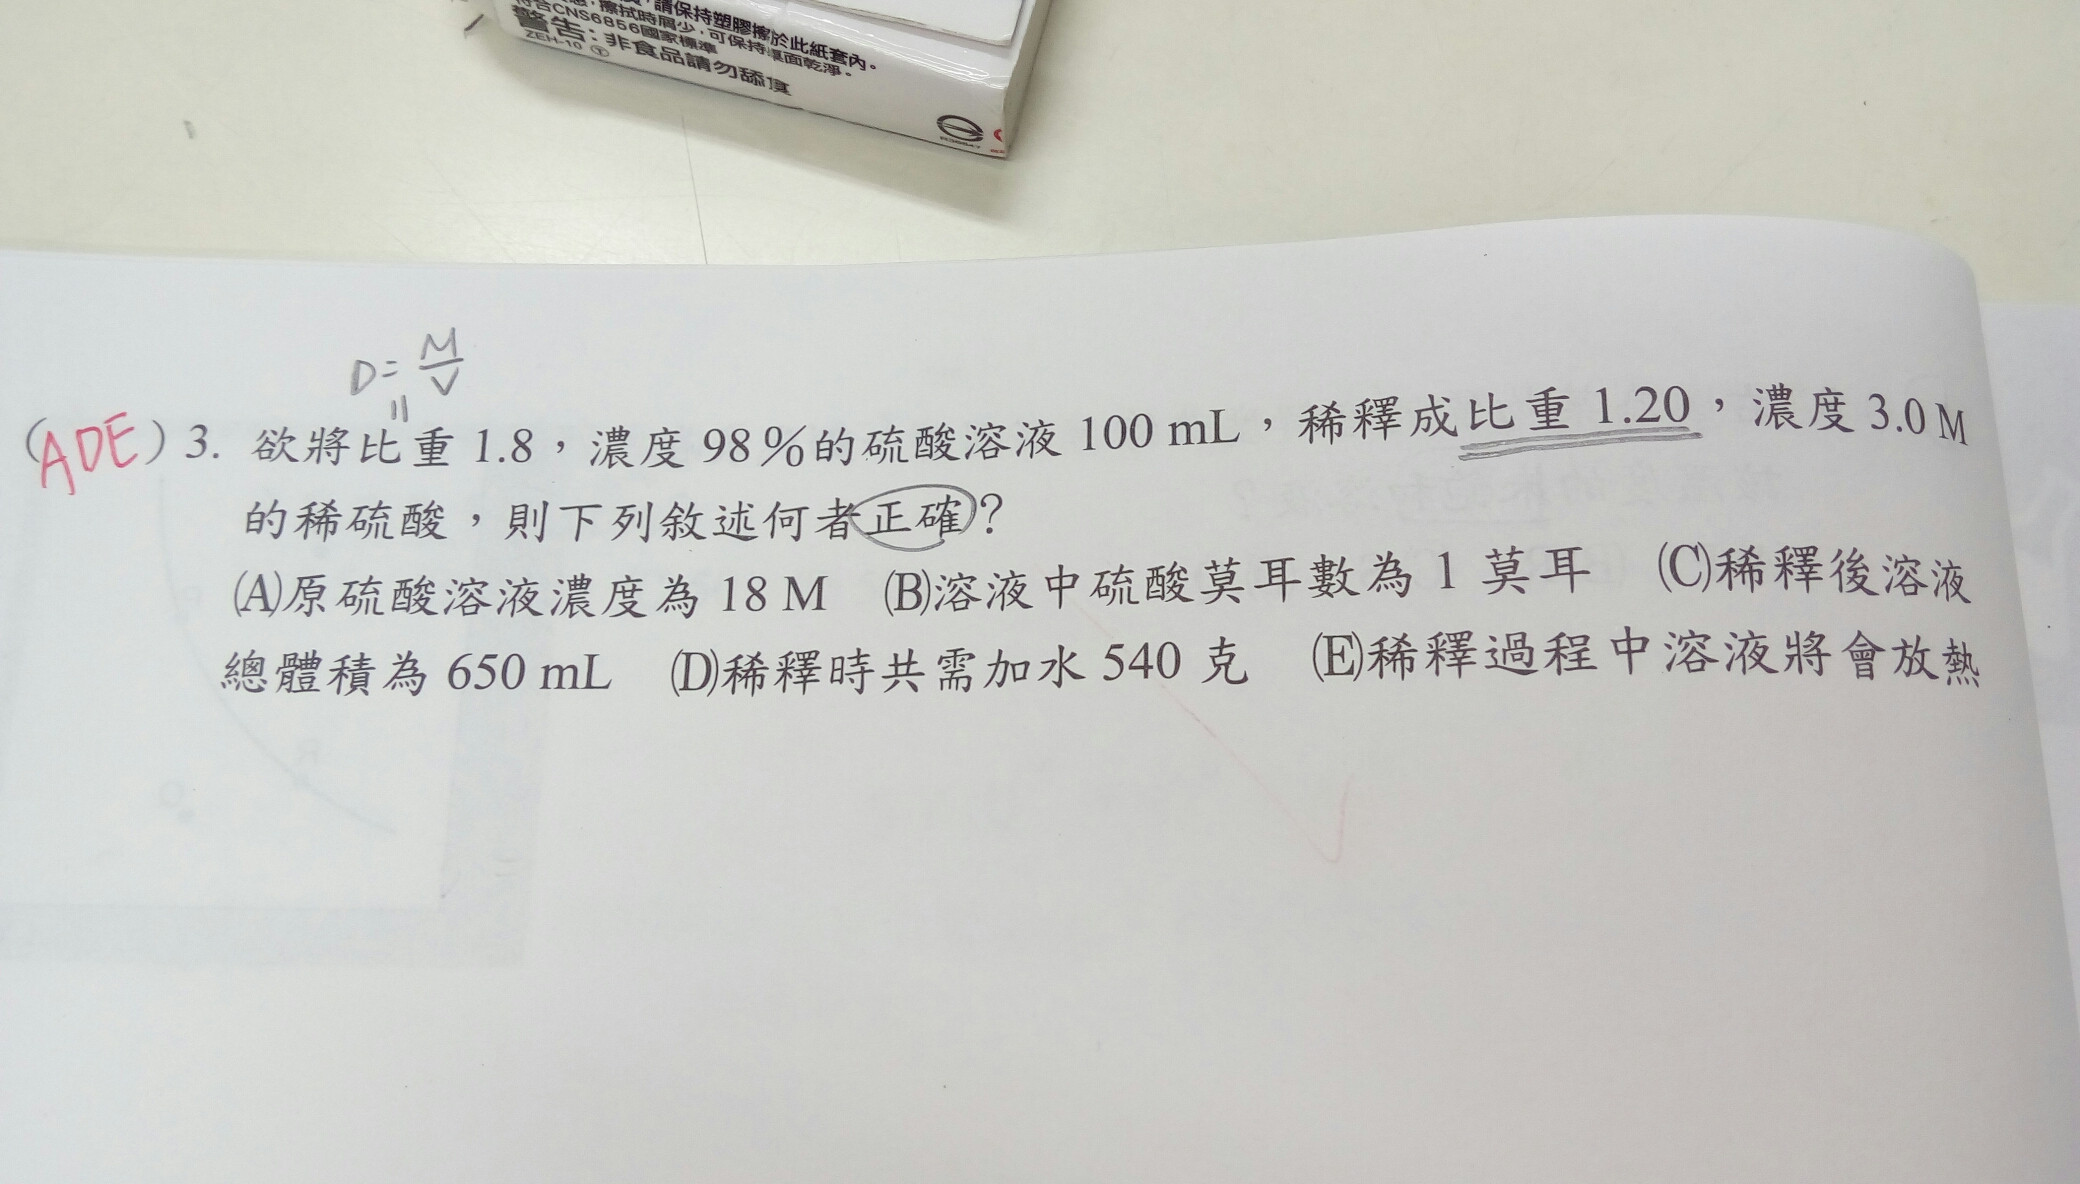 請保持塑膠擦於此紙套內。
擦拭時屑少,可保持桌面乾淨。
符合CNS6856國家標準
警告:非食品請勿舔食
ZEH-10 T
D = M/V
=
(ADE) 3. 欲將比重 1.8,濃度 98%的硫酸溶液 100 mL,稀釋成比重 1.20,濃度 3.0 M
的稀硫酸,則下列敘述何者正確?
(A)原硫酸溶液濃度為 18 M (B)溶液中硫酸莫耳數為 1 莫耳 (C)稀釋後溶液
總體積為 650 mL (D)稀釋時共需加水 540 克 (E)稀釋過程中溶液將會放熱